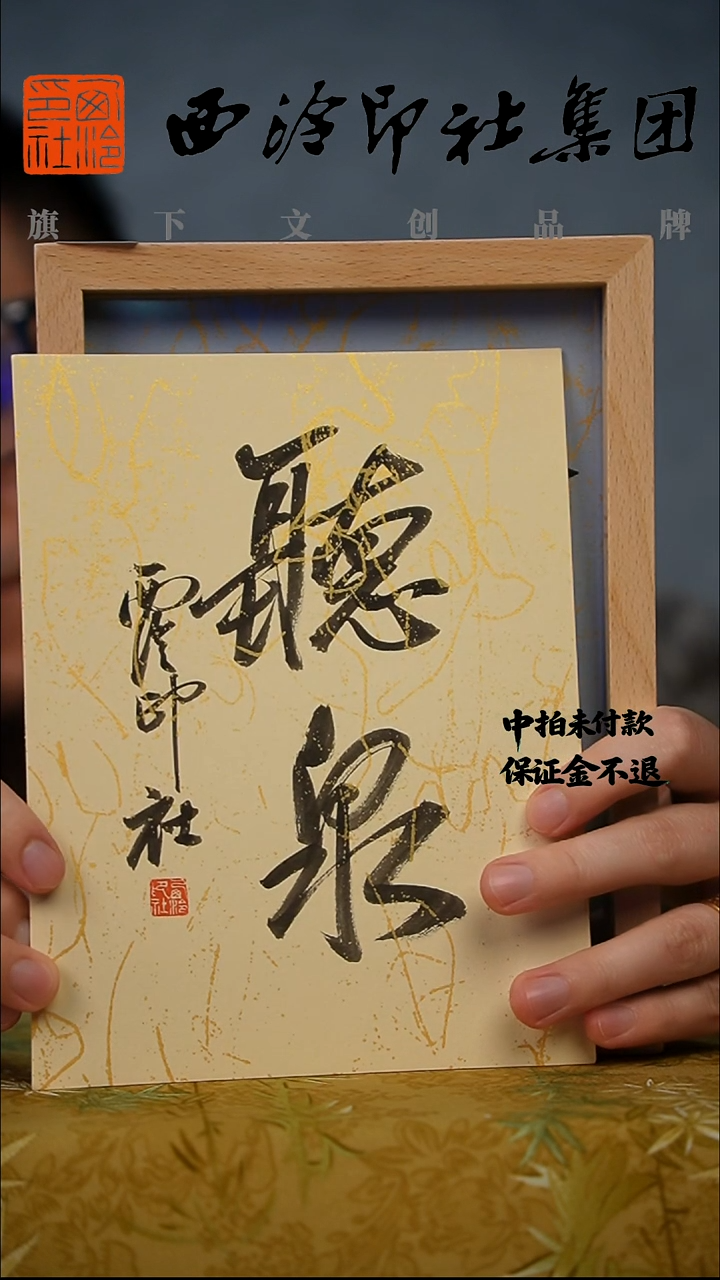 西泠印社
西泠印社集团
旗下文创品牌
聽泉
西泠印社
西泠印社
中拍未付款
保证金不退